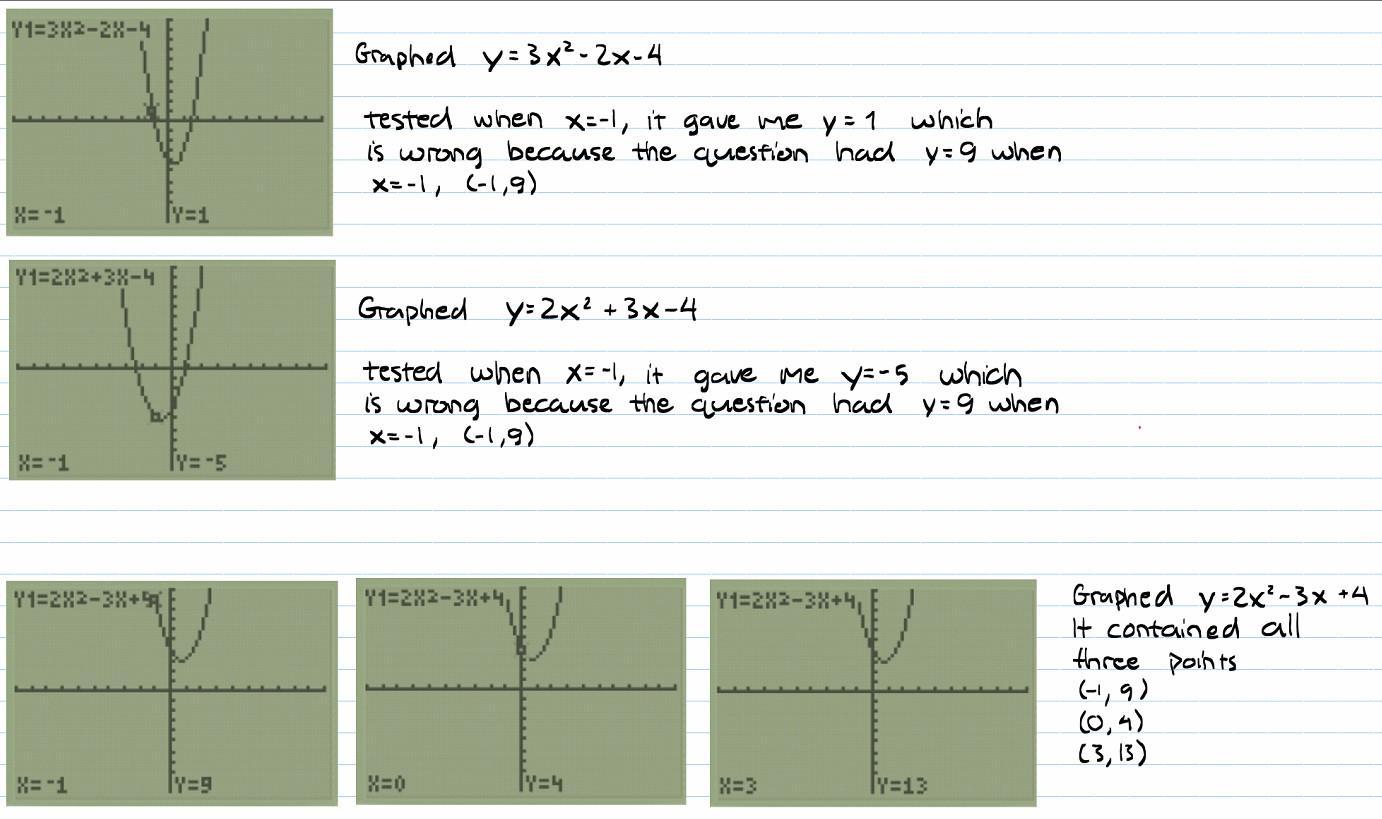 Y1=3X2-2X-4
X=-1 Y=1
Graphed y=3x²-2x-4
tested when x=-1, it gave me y=1 which
is wrong because the question had y=9 when
x=-1, (-1,9)
Y1=2X2+3X-4
X=-1 Y=-5
Graphed y=2x²+3x-4
tested when x=-1, it gave me y=-5 which
is wrong because the question had y=9 when
x=-1, (-1,9)
Y1=2X2-3X+4
X=-1 Y=9
Y1=2X2-3X+4
X=0 Y=4
Y1=2X2-3X+4
X=3 Y=13
Graphed y=2x²-3x+4
It contained all
three points
(-1, 9)
(0, 4)
(3, 13)